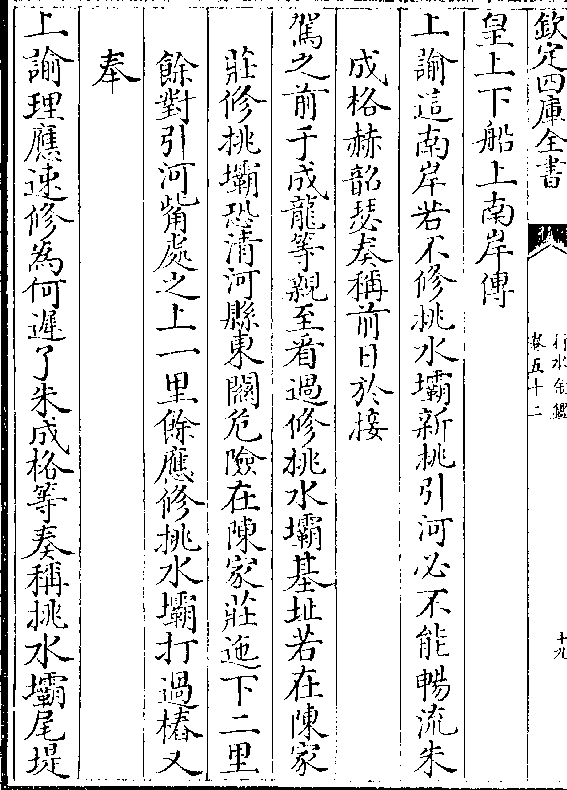 欽定四庫全書
行水金鑑
卷五十二
十九
皇上下船上南岸傳
上諭這南岸若不修挑水壩新挑引河必不能暢流朱
成格赫韶瑟奏稱前日於接
駕之前于成龍等親至看過修挑水壩基址若在陳家
莊修挑壩恐清河縣東關危險在陳家莊迤下二里
餘對引河觜處之上一里餘應修挑水壩打過樁又
奉
上諭理應速修為何遲了朱成格等奏稱挑水壩尾堤